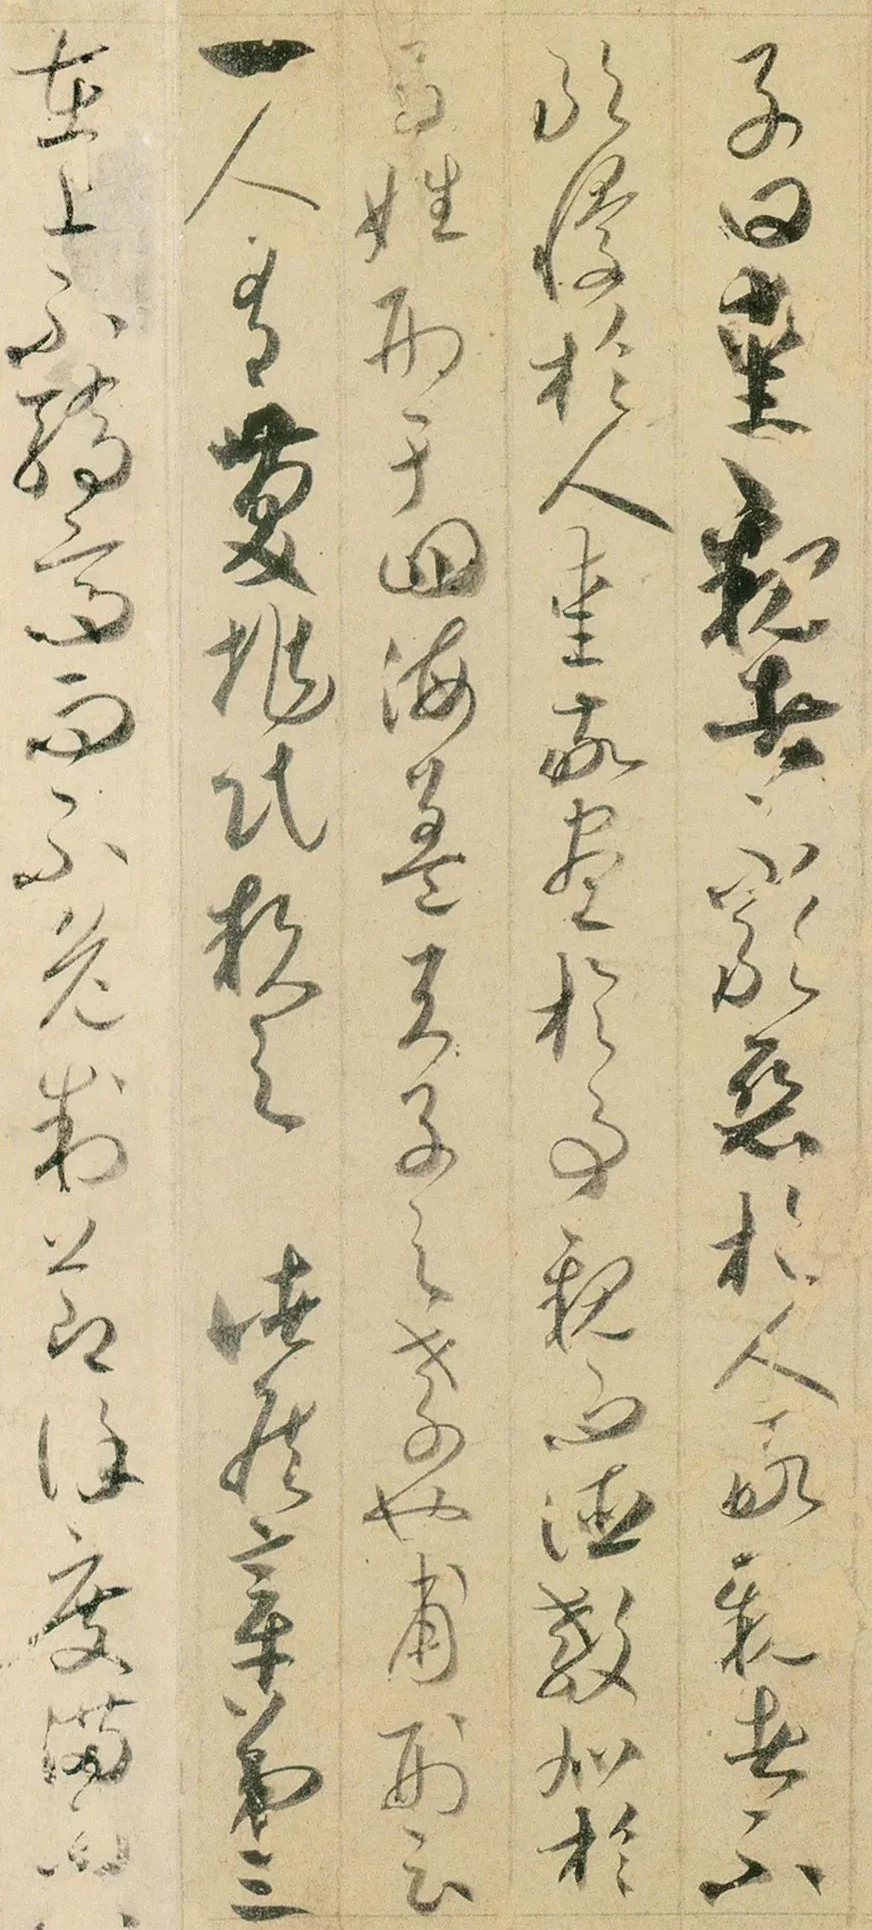 子曰愛親者不敢惡於人敬親者不
敢慢於人愛敬盡於事親而德教加於
百姓刑于四海蓋天子之孝也甫刑云
一人有慶兆民賴之　諸侯章第三
在上不驕高而不危制節謹度滿而